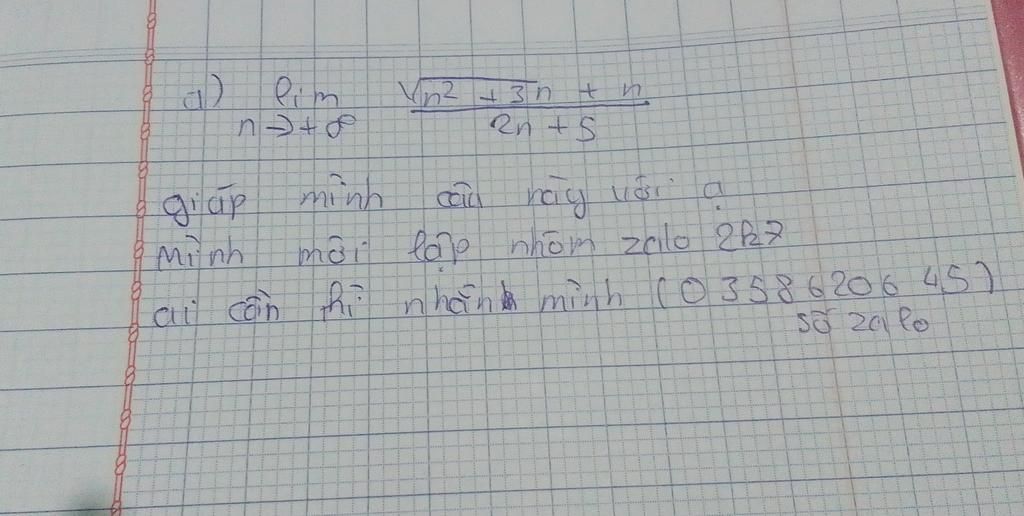 a) lim √n² + 3n + n
n → +∞ 2n + 5
giúp mình câu này với ạ
Mình mới lập nhóm zalo 2k7
ai cần thì nhắn mình (0358620645)
số zalo